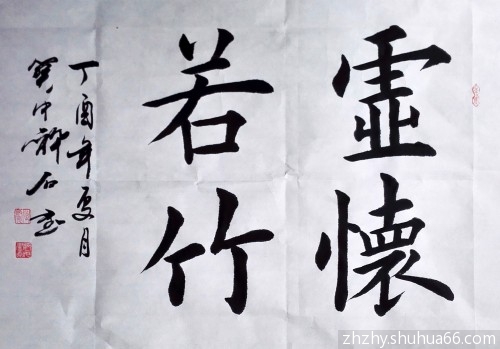 虛懷
若竹
丁酉年夏月
zhzhy.shuhua66.com